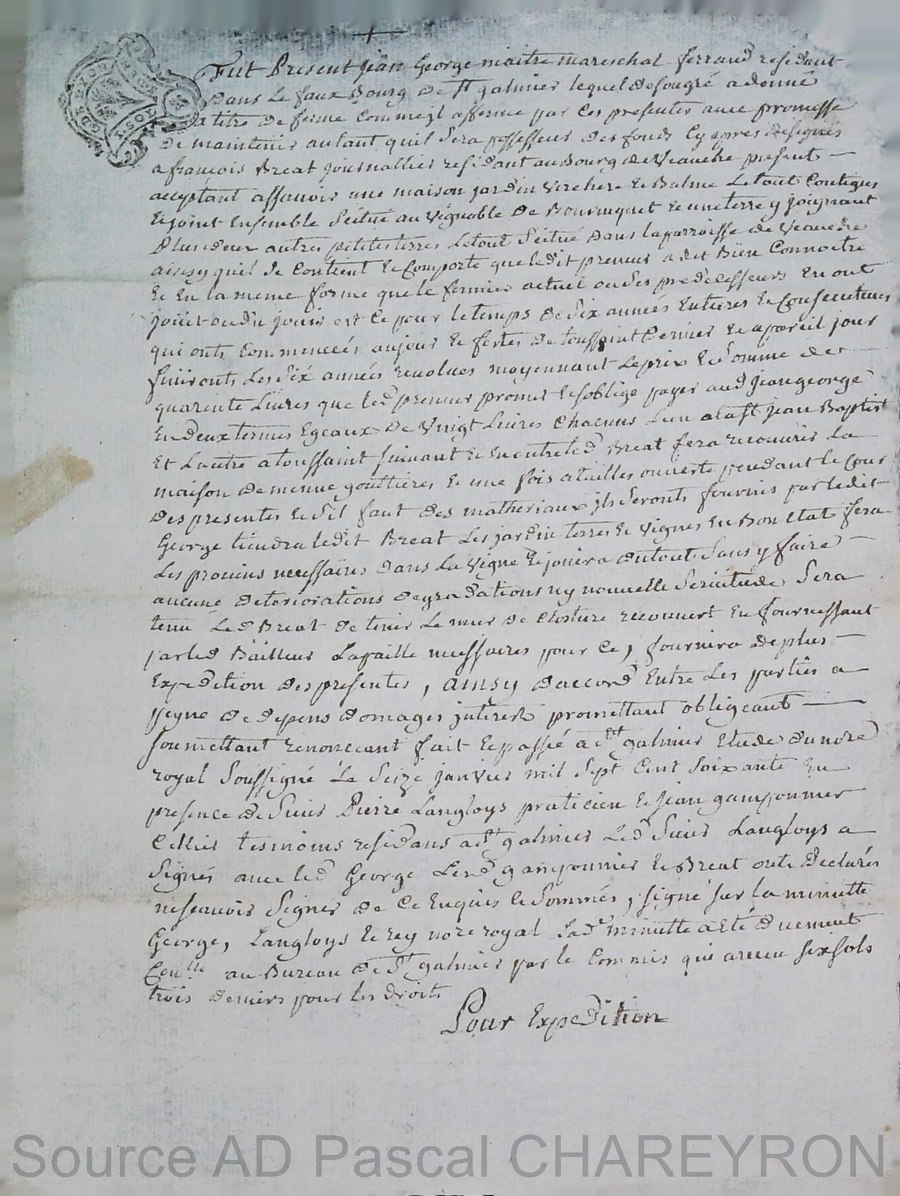 Fut Present Jean George maitre mareschal ferrand residant
dans Le faux Bourg de St galmier lequel de son gré a donné
a titre de ferme Comme jl afferme par Ces presentes avec promesse
de maintenir autant quil Sera possesseur des fonds Cy apres designés
a francois Breat journallier residant au Bourg de Veauche present
acceptant assavoir une maison jardin Verchere & Balme Le tout Contigus
& joint Ensemble Scitué au Vignoble de Bourruquet & une terre y joignant
Plus deux autres petites terres Le tout Scitué dans la parroisse de Veauche
ainsy quil Se Contient & Comporte que ledit preneur a dit Bien Connoitre
Et En la meme forme que le fermier actuel ou Ses predecesseurs En ont
jouit ou du jouir est Ce pour le temps de Six années Entieres & Consecutives
qui ont Commencées aujour & festes de toussaint Dernier & a pareil jour
finiront Les Six années revolues moyennant Le prix & Somme de
quarente Livres que led preneur promet & Soblige payer aud jean george
En deux termes Egeaux de Vingt Livres Chacuns Lun a la St jean Baptist
Et Lautre a toussaint suivant & En outre led Breat fera recouvrir La
maison de menue gouttieres & une fois a tuilles ouverte pendant le Cour
des presentes & Sil faut des matheriaux jls Seronts fournis par ledit
George tiendra ledit Breat Les jardin terres & Vignes En Bon Etat fera
Les provins necessaires dans La Vigne & jouira du tout Sans y faire
aucune deteriorations degradations ny nouvelle Servitude Sera
tenu Led Breat de tenir Le mur de Closture recouvert En fournissant
par led Bailleur La paille necessaires pour Ce, fournira de plus
Expedition des presentes, ainsy d'accord Entre Les parties a
peyne de depens domages jnterest promettant obligeant
soumettant renoncant fait & passé a St galmier Etude du nore
royal Soussigné Le Seize janvier mil Sept Cent Soixante En
presence de Sieurs Pierre Langloys praticien & jean gamponnier
tesmoins residans a St galmier Led Sieur Langloys a
Signés avec led George Les d gamponnier & Breat onts declarés
ne scavoir Signer de Ce Enquis & Sommés, signé sur la minutte
George, Langloys & rey nore royal Lad minutte a Eté duement
Conlle au Bureau de St galmier par le Commis qui a receu six sols
trois deniers pour les droits
Pour Expedition
Source AD Pascal CHAREYRON